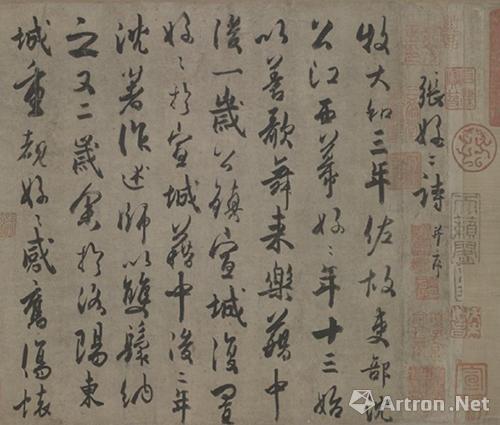 張好〻詩并序
牧大和三年佐故吏部沈
公江西幕好〻年十三始
以善歌舞来樂籍中
後一歲公鎮宣城復置
好〻於宣城籍中後二年
沈著作述師以雙鬟納
之又二歲余於洛陽東
城重覩好〻感舊傷懷
Artron.Net
雅昌艺术网